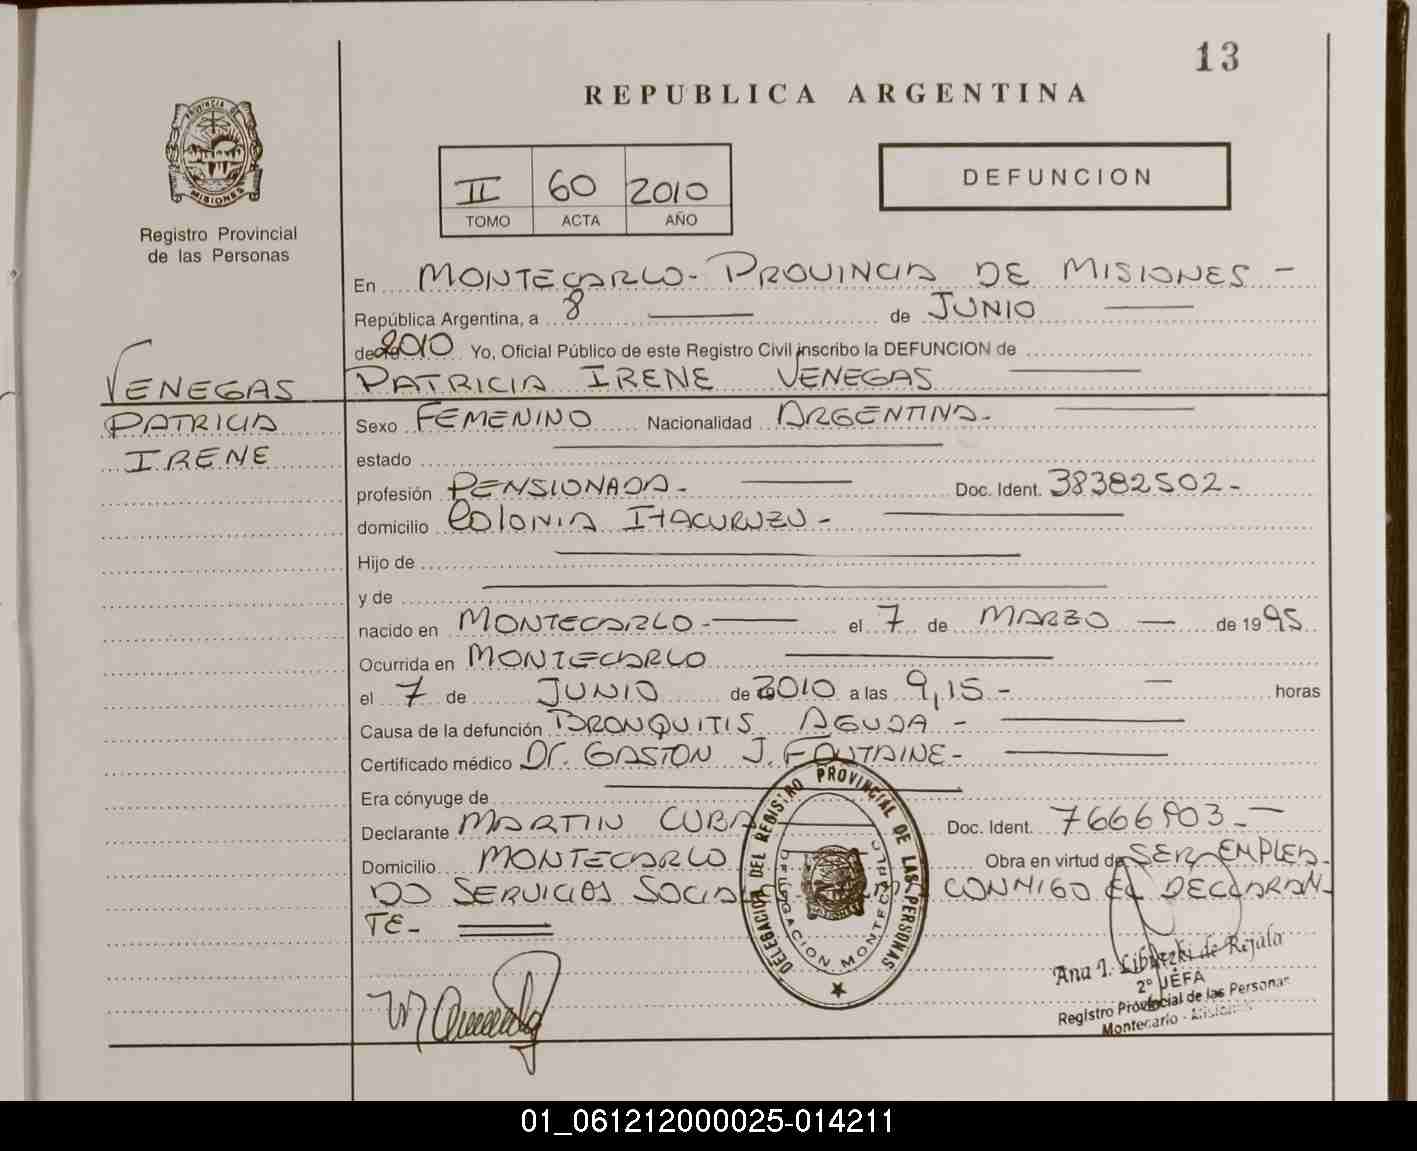 13
REPUBLICA ARGENTINA
PROVINCIA DE
MISIONES
Registro Provincial
de las Personas
II 60 2010
TOMO ACTA AÑO
DEFUNCION
En MONTECARLO - PROVINCIA DE MISIONES -
República Argentina, a 8 de JUNIO
de 2010 Yo, Oficial Público de este Registro Civil inscribo la DEFUNCION de
PATRICIA IRENE VENEGAS
VENEGAS
PATRICIA
IRENE
Sexo FEMENINO Nacionalidad ARGENTINA -
estado
profesión PENSIONADA - Doc. Ident. 38382502 -
domicilio COLONIA ITACURUZU -
Hijo de
y de
nacido en MONTECARLO - el 7 de MARZO de 1995
Ocurrida en MONTECARLO
el 7 de JUNIO de 2010 a las 9,15 - horas
Causa de la defunción BRONQUITIS AGUDA -
Certificado médico Dr. GASTON J. FONTAINE -
Era cónyuge de
Declarante MARTIN CUBA Doc. Ident. 7666903 -
Domicilio MONTECARLO Obra en virtud de SER EMPLEA-
DO SERVICIOS SOCIA CONMIGO EL DECLARAN-
TE -
DELEGACION DEL REGISTRO PROVINCIAL DE LAS PERSONAS
DELEGACION MONTECARLO
Ana I. de Rejala
2º JEFA
Registro Provincial de las Personas
Montecarlo - Misiones
01_061212000025-014211